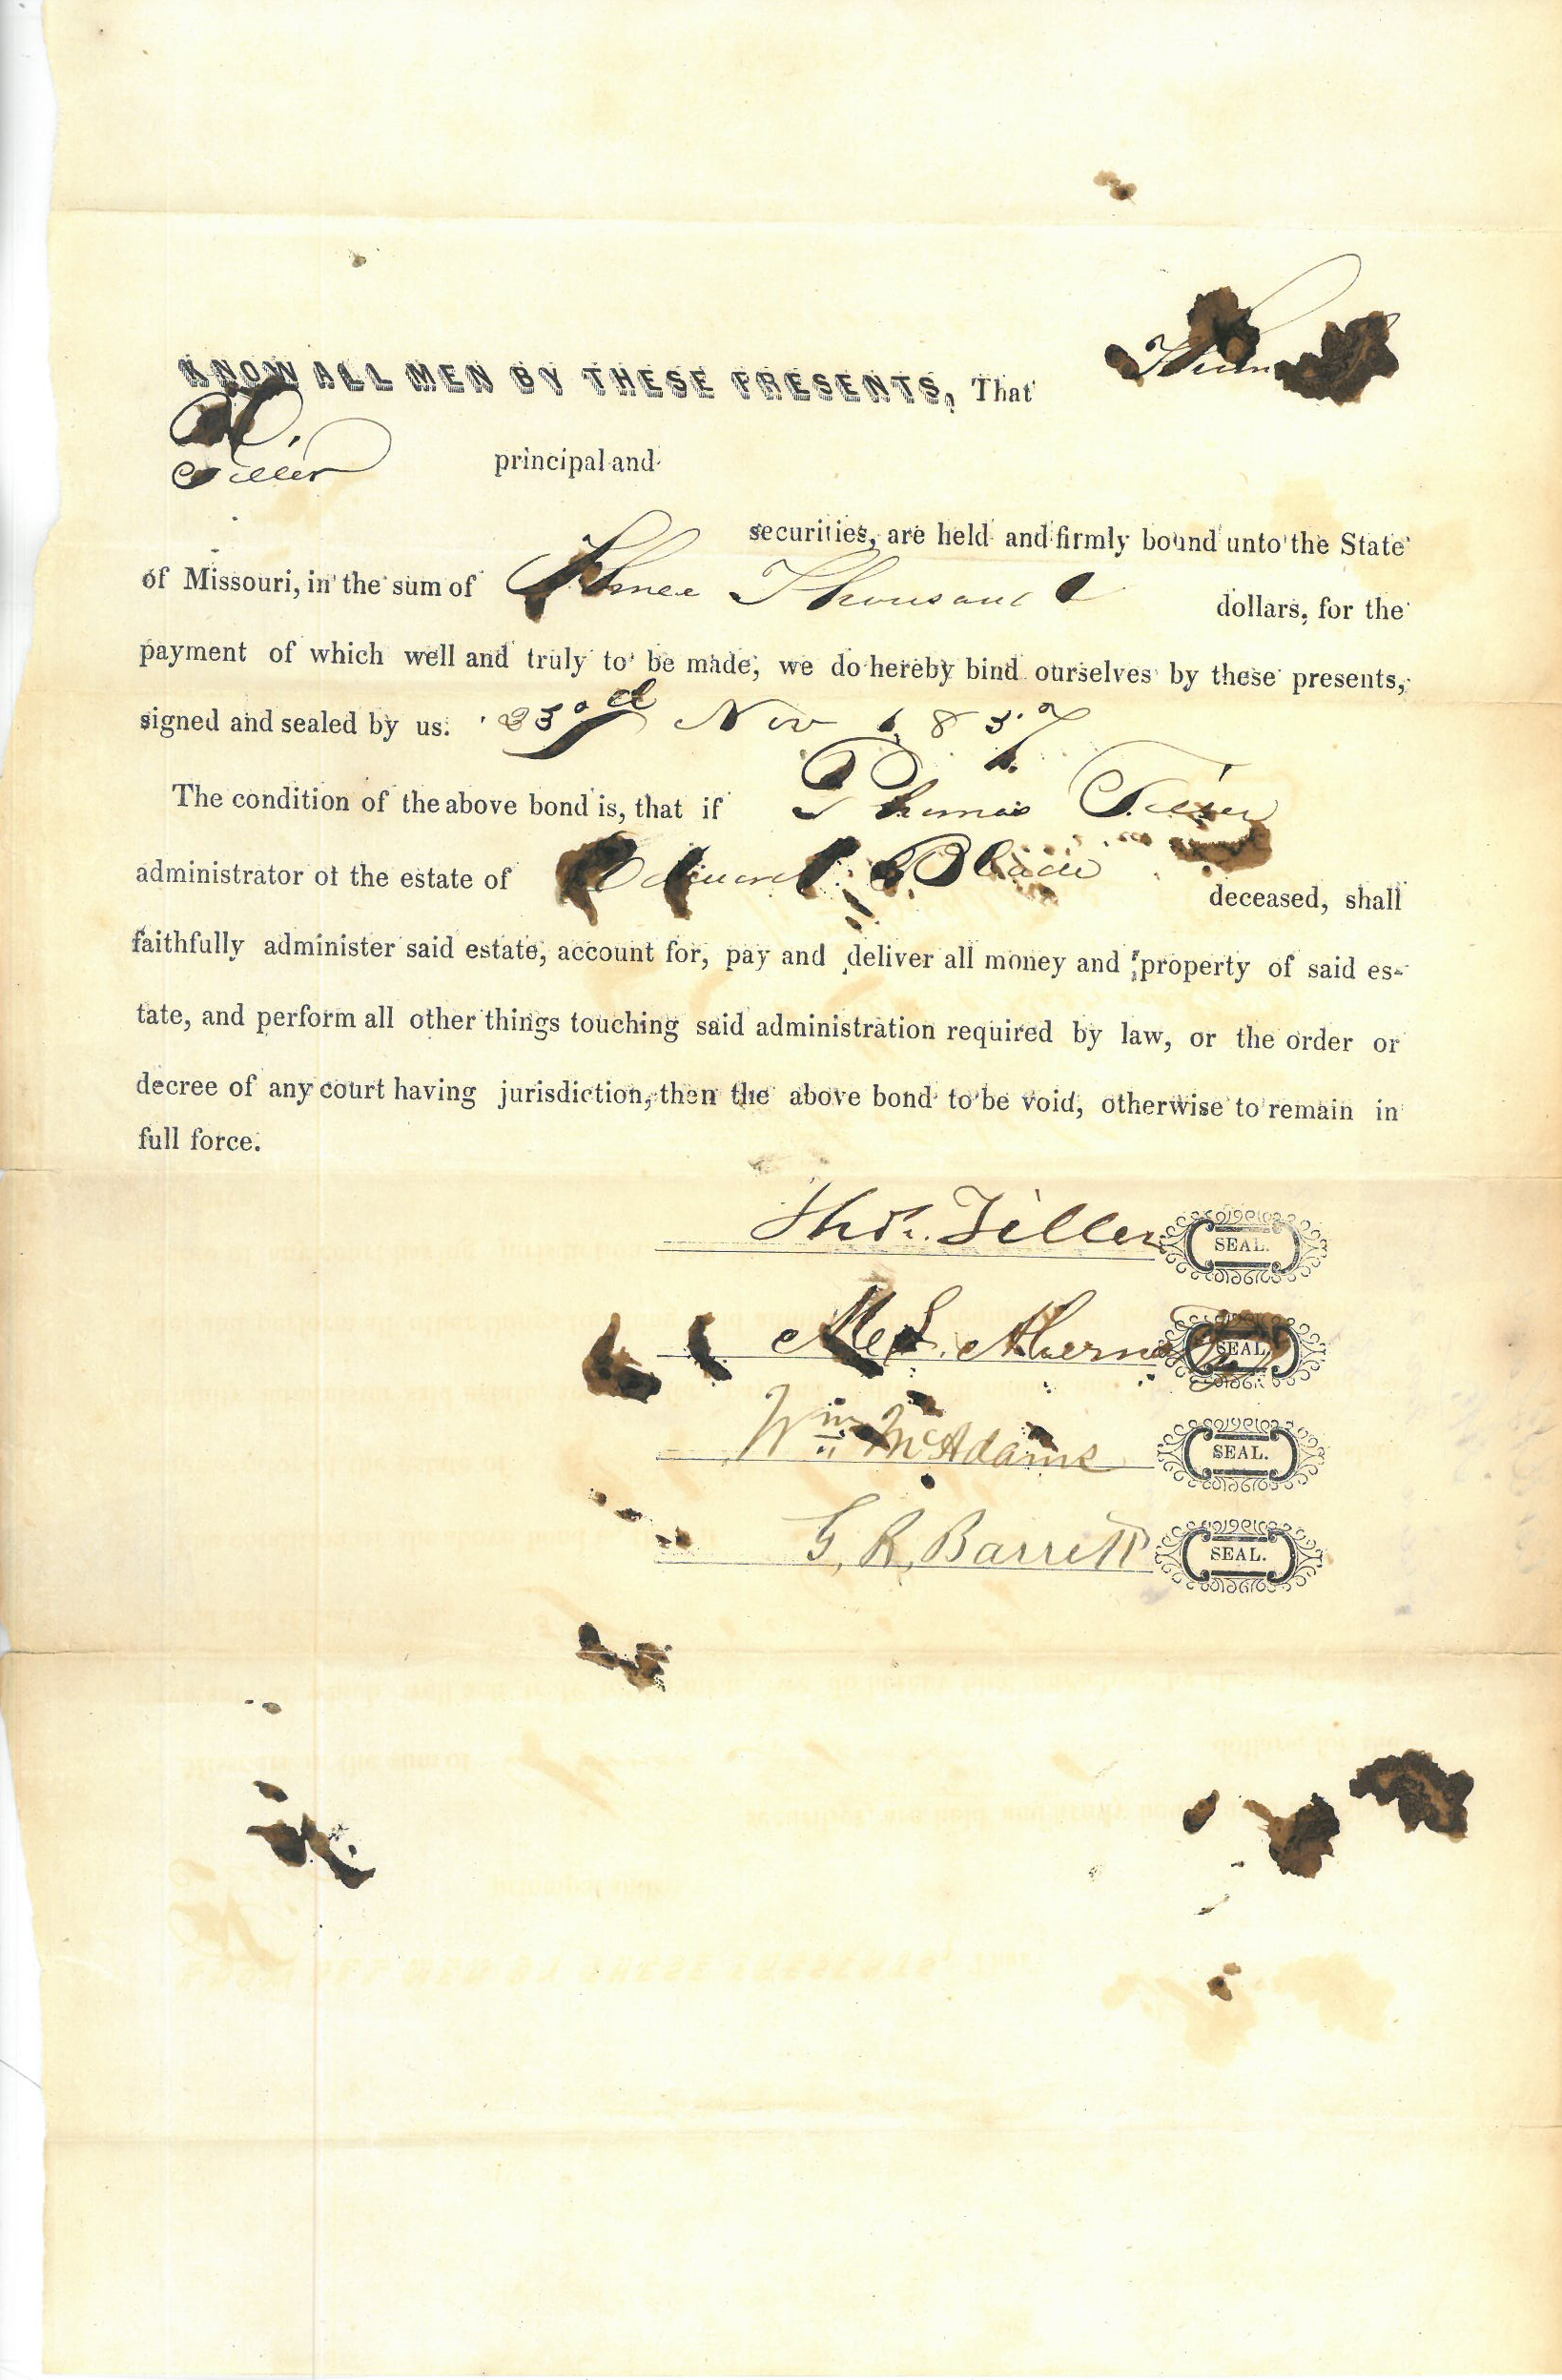 KNOW ALL MEN BY THESE PRESENTS, That
Tiller principal and
securities, are held and firmly bound unto the State
of Missouri, in the sum of Three Thousand dollars, for the
payment of which well and truly to be made, we do hereby bind ourselves by these presents,
signed and sealed by us. 23rd Nov 1857
The condition of the above bond is, that if Thomas Tiller
administrator of the estate of Edward Blade deceased, shall
faithfully administer said estate, account for, pay and deliver all money and property of said es-
tate, and perform all other things touching said administration required by law, or the order or
decree of any court having jurisdiction, then the above bond to be void, otherwise to remain in
full force.
Thos. Tiller SEAL.
SEAL.
Wm McAdams SEAL.
G. R. Barrett SEAL.